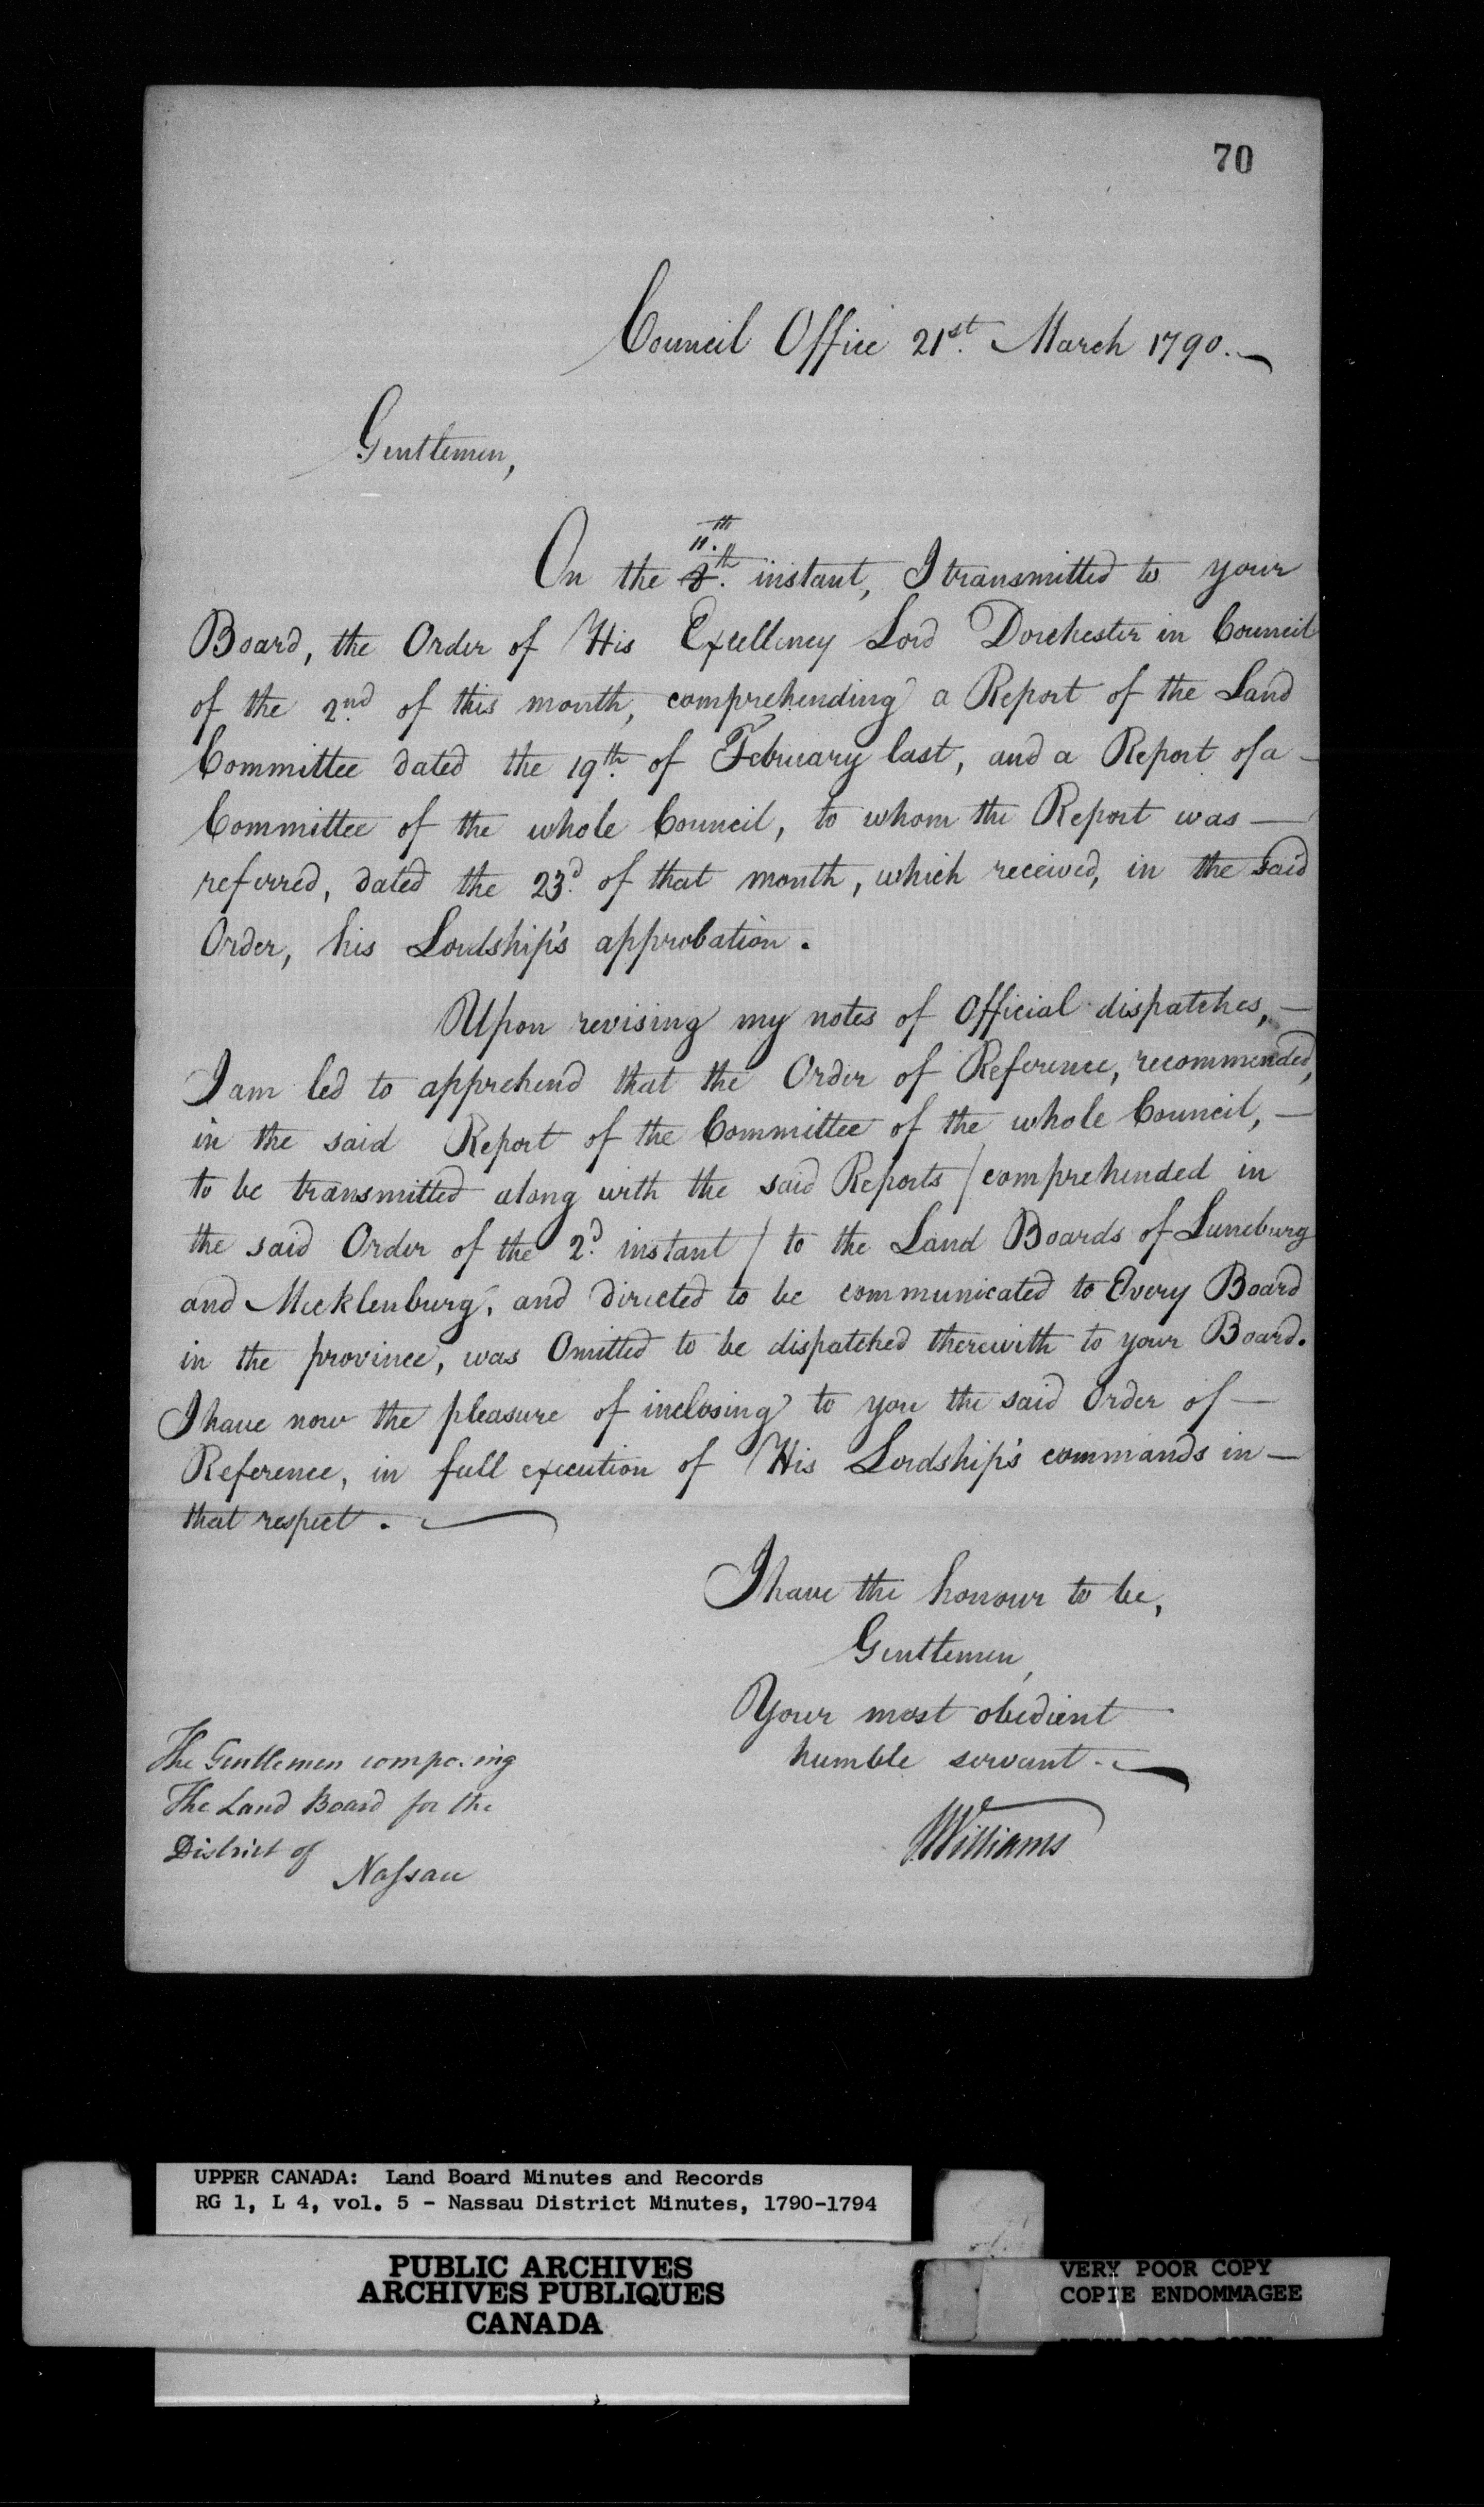 70
Council Office 21st. March 1790.
Gentlemen,
11.th
On the 8th. instant, I transmitted to your
Board, the Order of His Excellency Lord Dorchester in Council
of the 2nd. of this month, comprehending a Report of the Land
Committee dated the 19th. of February last, and a Report of a –
Committee of the whole Council, to whom the Report was —
referred, dated the 23d. of that month, which received, in the said
Order, his Lordship's approbation.
Upon revising my notes of Official dispatches, –
I am led to apprehend that the Order of Reference, recommended,
in the said Report of the Committee of the whole Council, —
to be transmitted along with the said Reports / comprehended in
the said Order of the 2d. instant / to the Land Boards of Luneburg
and Mecklenburg, and directed to be communicated to Every Board
in the province, was Omitted to be dispatched therewith to your Board.
I have now the pleasure of inclosing to you the said Order of —
Reference, in full execution of His Lordship's commands in —
that respect. —
I have the honour to be,
Gentlemen,
Your most obedient
humble servant. —
JWilliams
The Gentlemen composing
The Land Board for the
District of
Nassau
UPPER CANADA: Land Board Minutes and Records
RG 1, L 4, vol. 5 - Nassau District Minutes, 1790-1794
PUBLIC ARCHIVES
ARCHIVES PUBLIQUES
CANADA
VERY POOR COPY
COPIE ENDOMMAGEE